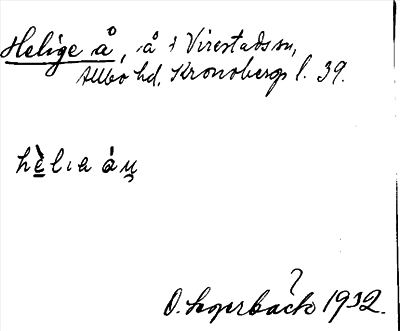 Helige å, å i Virestads sn,
Allbo hd. Kronobergs l. 39.
hèlıa áų
O. Lagerbäck 1932.
?